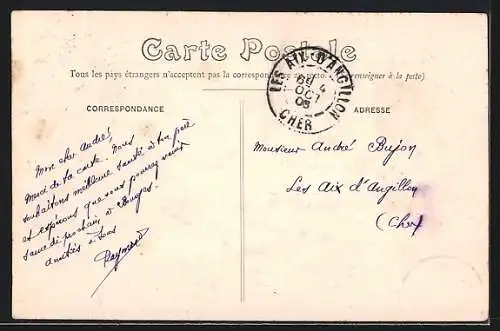 Carte Postale
Tous les pays étrangers n'acceptent pas la correspondance au recto. (Se renseigner à la poste)
LES AIX-D'ANGILLON
4
OCT
05
CHER
CORRESPONDANCE
ADRESSE
Mon cher André
Merci de ta carte. Nous
souhaitons meilleure santé à ton père
et espérons que vous pourrez venir
samedi prochain à Bourges.
amitiés à tous
Raymond
Monsieur André Bujon
Les Aix d'Angillon
(Cher)